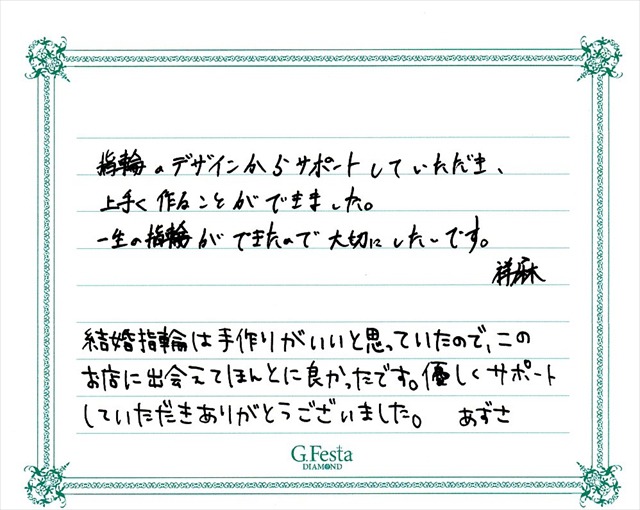 指輪のデザインからサポートしていただき、
上手く作ることができました。
一生の指輪ができたので大切にしたいです。
祥麻
結婚指輪は手作りがいいと思っていたので、この
お店に出会えてほんとに良かったです。優しくサポート
していただきありがとうございました。 あずさ
G.Festa
DIAMOND